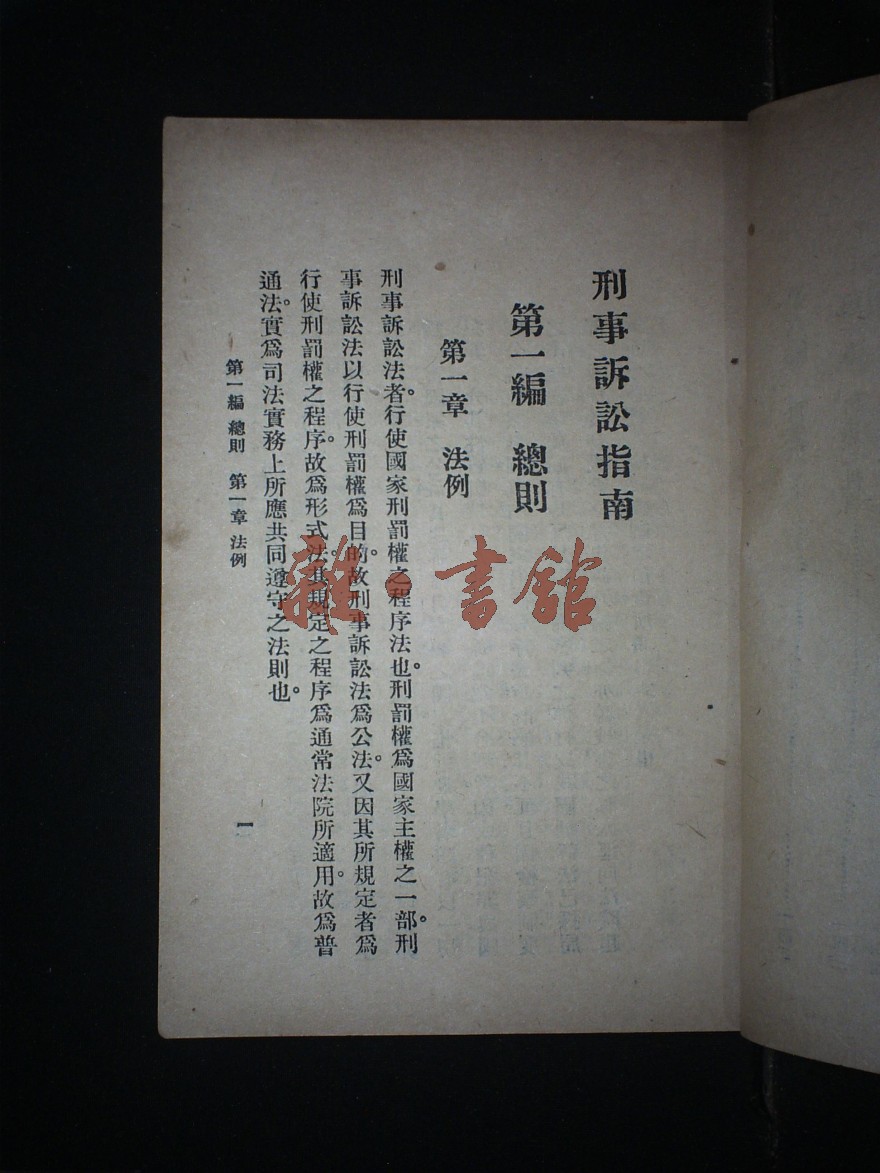 刑事訴訟指南
第一編　總則
第一章　法例
刑事訴訟法者。行使國家刑罰權之程序法也。刑罰權爲國家主權之一部。刑
事訴訟法以行使刑罰權爲目的。故刑事訴訟法爲公法。又因其所規定者爲
行使刑罰權之程序。故爲形式法。其規定之程序爲通常法院所適用。故爲普
通法。實爲司法實務上所應共同遵守之法則也。
第一編　總則　第一章　法例
一
雜·書館